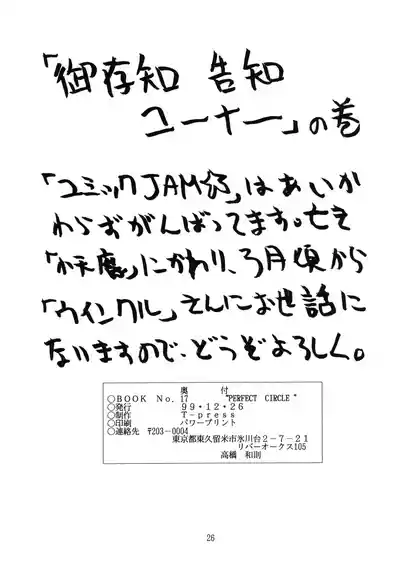 「御存知 告知
コーナー」の巻
「コミックJAM
」はあいか
わらずがんばってます。
にかわり、3月頃から
「ウインクル」さんにお世話に
ないますので、どうぞよろしく。
奥 付
○BOOK No. 17 "PERFECT CIRCLE"
○発行 99・12・26
○制作 T-press
○印刷 パワープリント
○連絡先 〒203-0004
東京都東久留米市氷川台2-7-21
リバーオークス105
高橋 和則
26